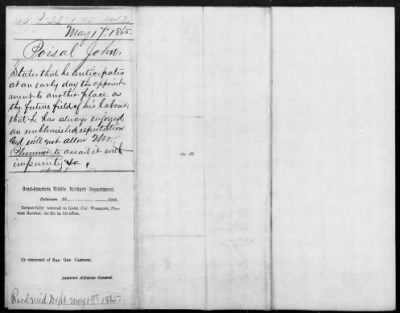 May 17th 1865.
Poisal John.
States that he anticipates
at an early day the appoint
ment to another place as
the future field of his labours
that he has always enjoyed
an unblemished reputation
and will not allow Wm.
Plummer to assail it with
impunity &c.
Head-Quarters Middle Military Department.
Baltimore Md., 1865.
Respectfully referred to Lieut. Col. Woolley, Pro-
vost Marshal,
By command of Maj Gen
Assistant Adjutant General.
Recd Mid Dept May 19th 1865.